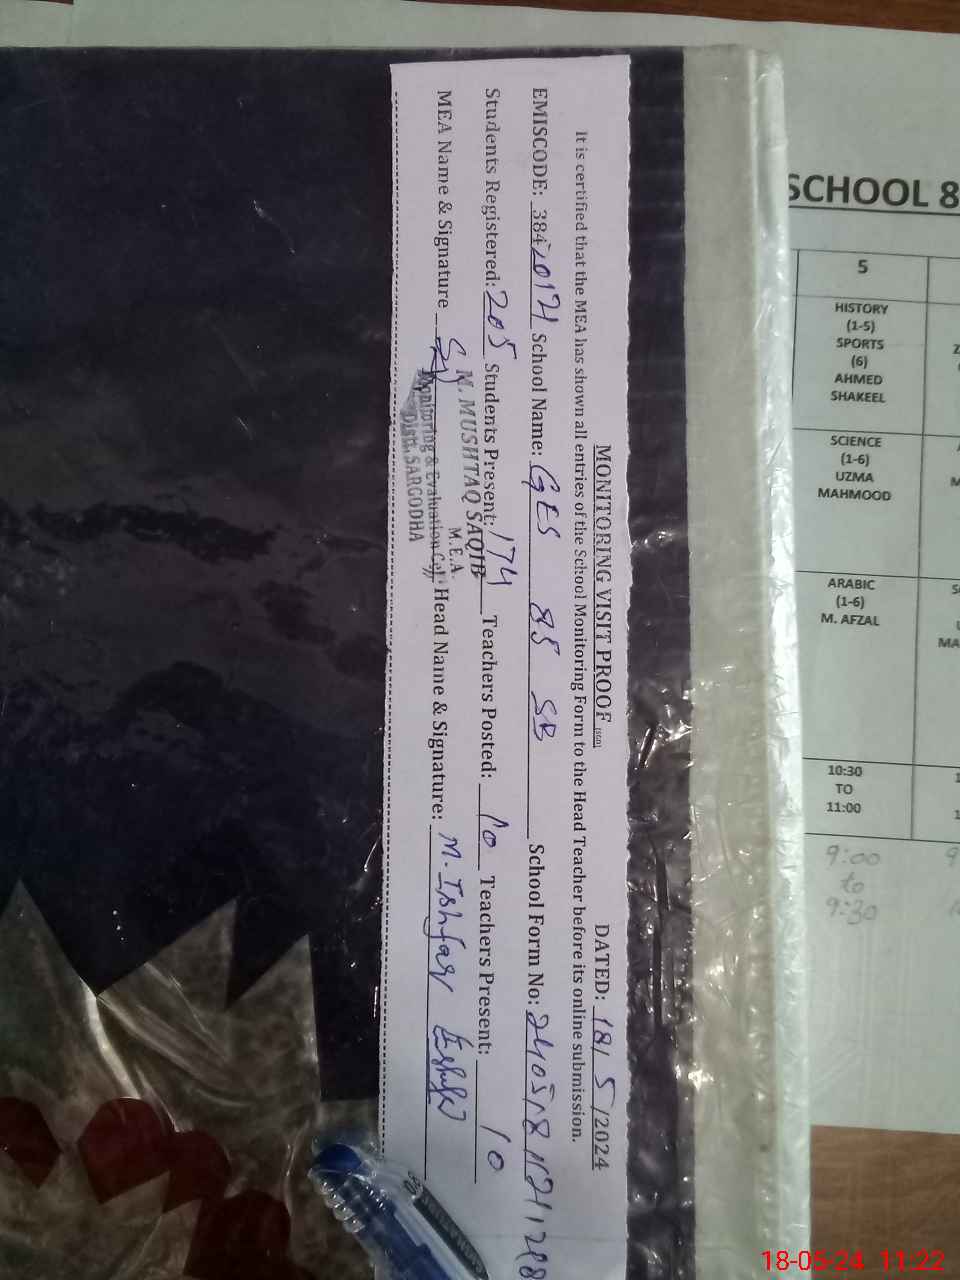 MONITORING VISIT PROOF (SED) DATED: 18/5/2024
It is certified that the MEA has shown all entries of the School Monitoring Form to the Head Teacher before its online submission.
EMISCODE: School Name: GES 85 SB School Form No:
Students Registered: 205 Students Present: 174 Teachers Posted: 10 Teachers Present: 10
MEA Name & Signature Head Name & Signature: M. Ishfaq
S. M. MUSHTAQ SAQIB
M.E.A.
Monitoring & Evaluation Cell
Distt. SARGODHA
SCHOOL 8
5
HISTORY
(1-5)
SPORTS
(6)
AHMED
SHAKEEL
SCIENCE
(1-6)
UZMA
MAHMOOD
ARABIC
(1-6)
M. AFZAL
10:30
TO
11:00
9:00
to
9:30
18-05-24 11:22